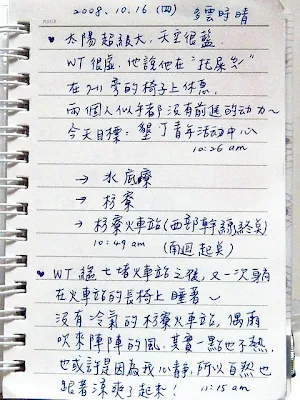 2008.10.16 (四) 多雲時晴
♥ 太陽超級大,天空很藍
WT很虛,他說他在"托屎ㄌ"
在7-11旁的椅子上休息,
兩個人似乎都沒有前進的動力~
今天目標:墾丁青年活動中心
10:26 am
→ 水底寮
→ 枋寮
→ 枋寮火車站(西部幹線終矣)
10:49 am (南迴起矣)
♥ WT繼七堵火車站之後,又一次躺
在火車站的長椅上睡著~
沒有冷氣的枋寮火車站,偶爾
吹來陣陣的風,其實一點也不熱,
也或許是因為我心靜,所以自然也
跟著涼爽了起來! 11:15 am